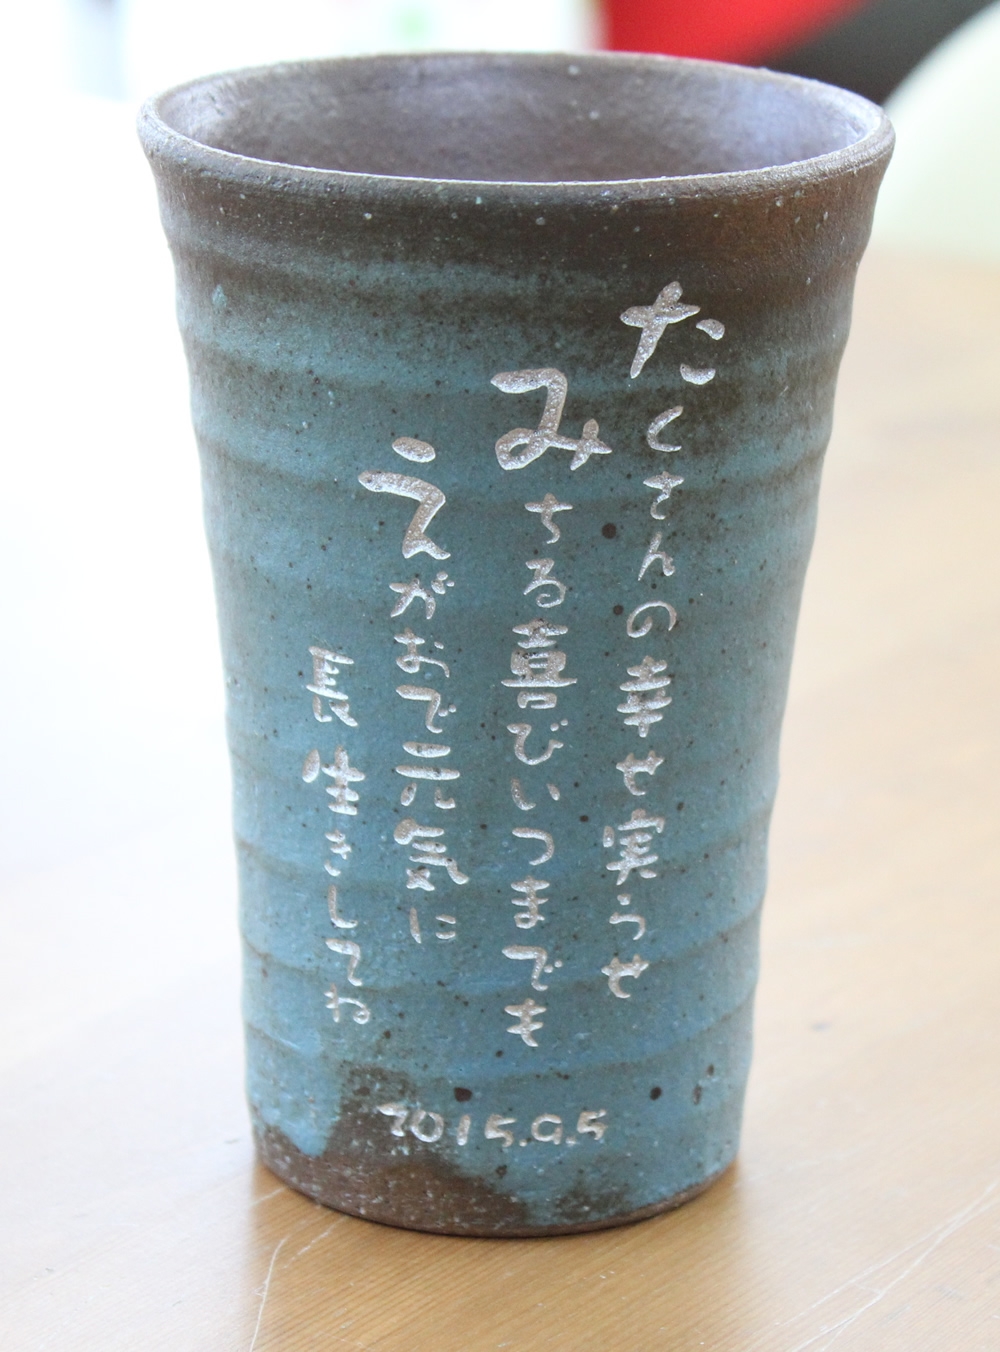 たくさんの幸せ実らせ
みちる喜びいつまでも
えがおで元気に
長生きしてね
2015.9.5